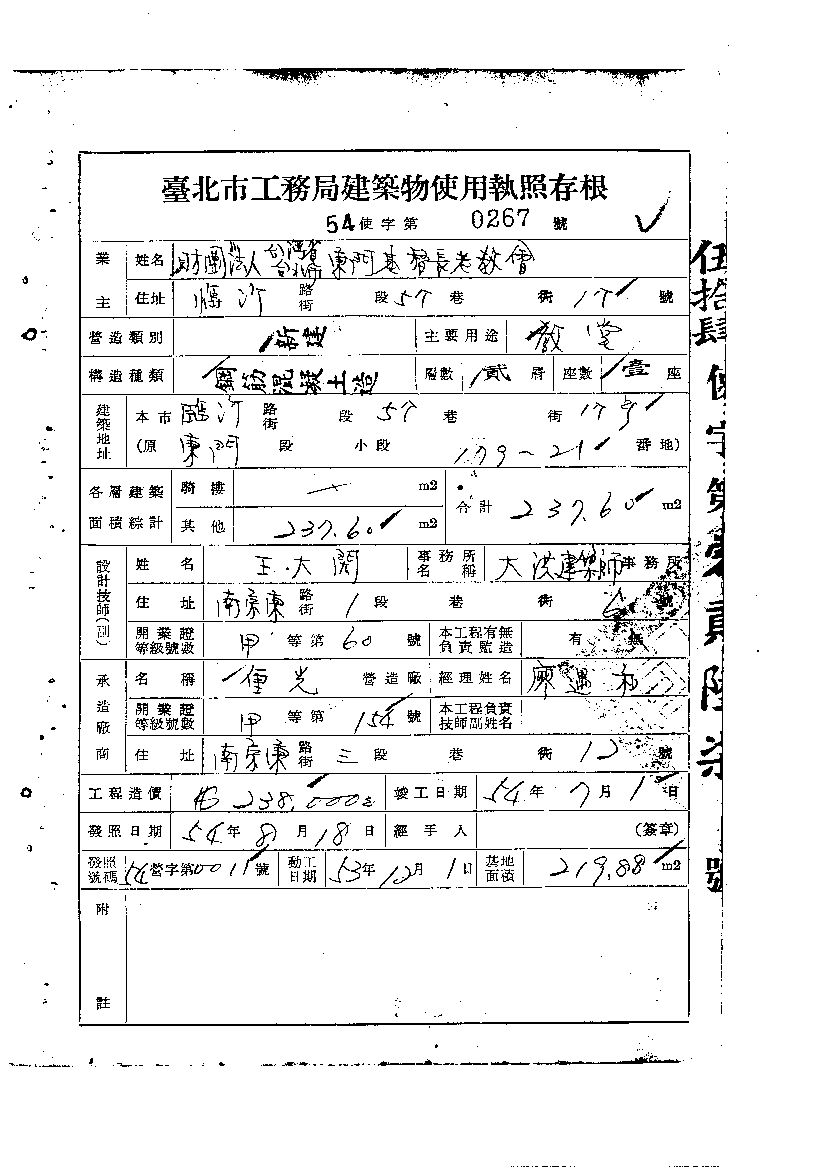 臺北市工務局建築物使用執照存根
54使字第 0267 號
業主 姓名 財團法人台灣省台北市東門基督長老教會
住址 臨沂 路街 段 57 巷 街 17 號
營造類別 新建 主要用途 教堂
構造種類 鋼筋混凝土造 層數 貳層 座數 壹座
建築地址 本市 臨沂 路街 段 57 巷 街 17号
(原 東門 段 小段 179-21 番地)
各層建築面積綜計 騎樓 — m2 合計 237.60 m2
其他 237.60 m2
設計技師(副) 姓名 王大閎 事務所名稱 大洪建築師事務所
住址 南京東 路街 1 段 巷 街 號
開業證等級號數 甲 等第 60 號 本工程有無負責監造 有 無
承造廠商 名稱 僮光 營造廠 經理姓名 廖遇
開業證等級號數 甲 等第 154 號 本工程負責技師副姓名
住址 南京東 路街 三段 巷 街 12 號
工程造價 238,000 竣工日期 54年 7月 1日
發照日期 54年 8月 18日 經手人 (簽章)
發照號碼 54營字第0011號 動工日期 53年 12月 1日 基地面積 219.88 m2
附註
伍拾肆使字第零貳陸柒號